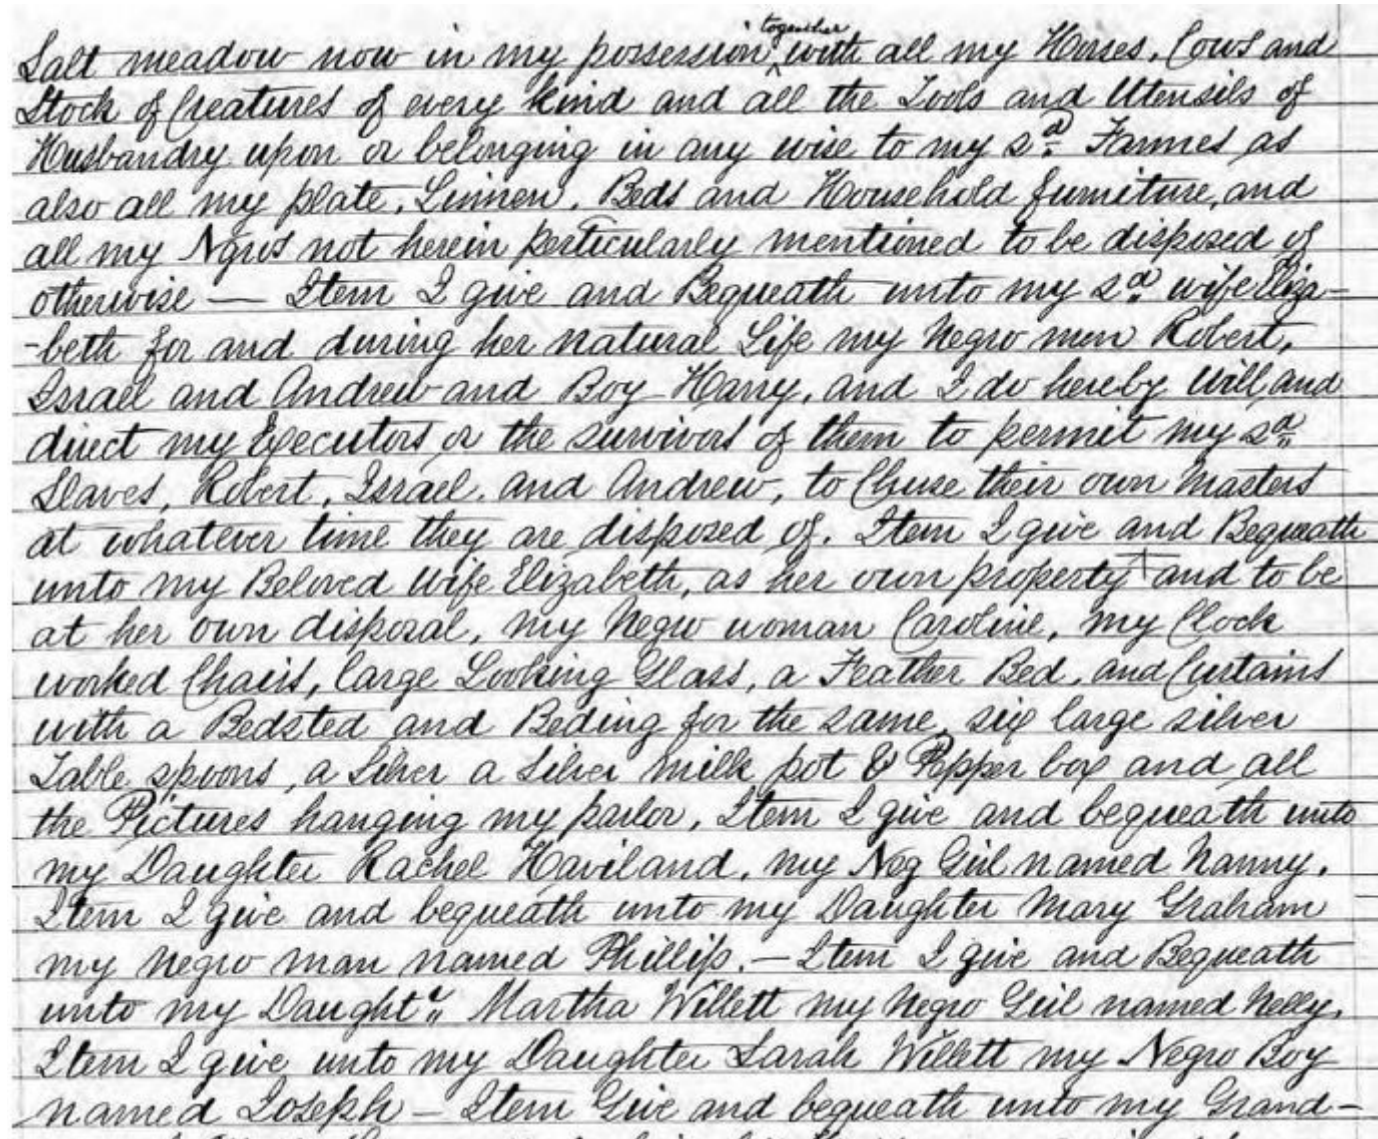 Salt meadow now in my possession, together with all my Horses, Cows and
Stock of Creatures of every kind and all the Tools and Utensils of
Husbandry upon or belonging in any wise to my sd. Farmes as
also all my plate, Linnen, Beds and Household furniture, and
all my Ngros not herein perticularly mentioned to be disposed of
otherwise — Item I give and Bequeath unto my sd. wife Eliza-
-beth for and during her natural Life my Negro men Robert,
Israel and Andrew and Boy Harry, and I do hereby Will and
direct my Executors or the survivors of them to permit my sd.
Slaves, Robert, Israel, and Andrew, to Chuse their own Masters
at whatever time they are disposed of. Item I give and Bequeath
unto my Beloved Wife Elizabeth, as her own property and to be
at her own disposal, my Negro woman Caroline, my Clock
worked Chairs, large Looking Glass, a Feather Bed, and Curtains
with a Bedsted and Beding for the same, six large silver
Table spoons, a Silver a Silver milk pot & Pepper box and all
the Pictures hanging my parlor, Item I give and bequeath unto
my Daughter Rachel Haviland, my Neg Girl named Nanny.
Item I give and bequeath unto my Daughter Mary Graham
my Negro man named Phillip. — Item I give and Bequeath
unto my Daughtr. Martha Willett my Negro Girl named Nelly.
Item I give unto my Daughter Sarah Willett my Negro Boy
named Joseph — Item Give and bequeath unto my Grand-